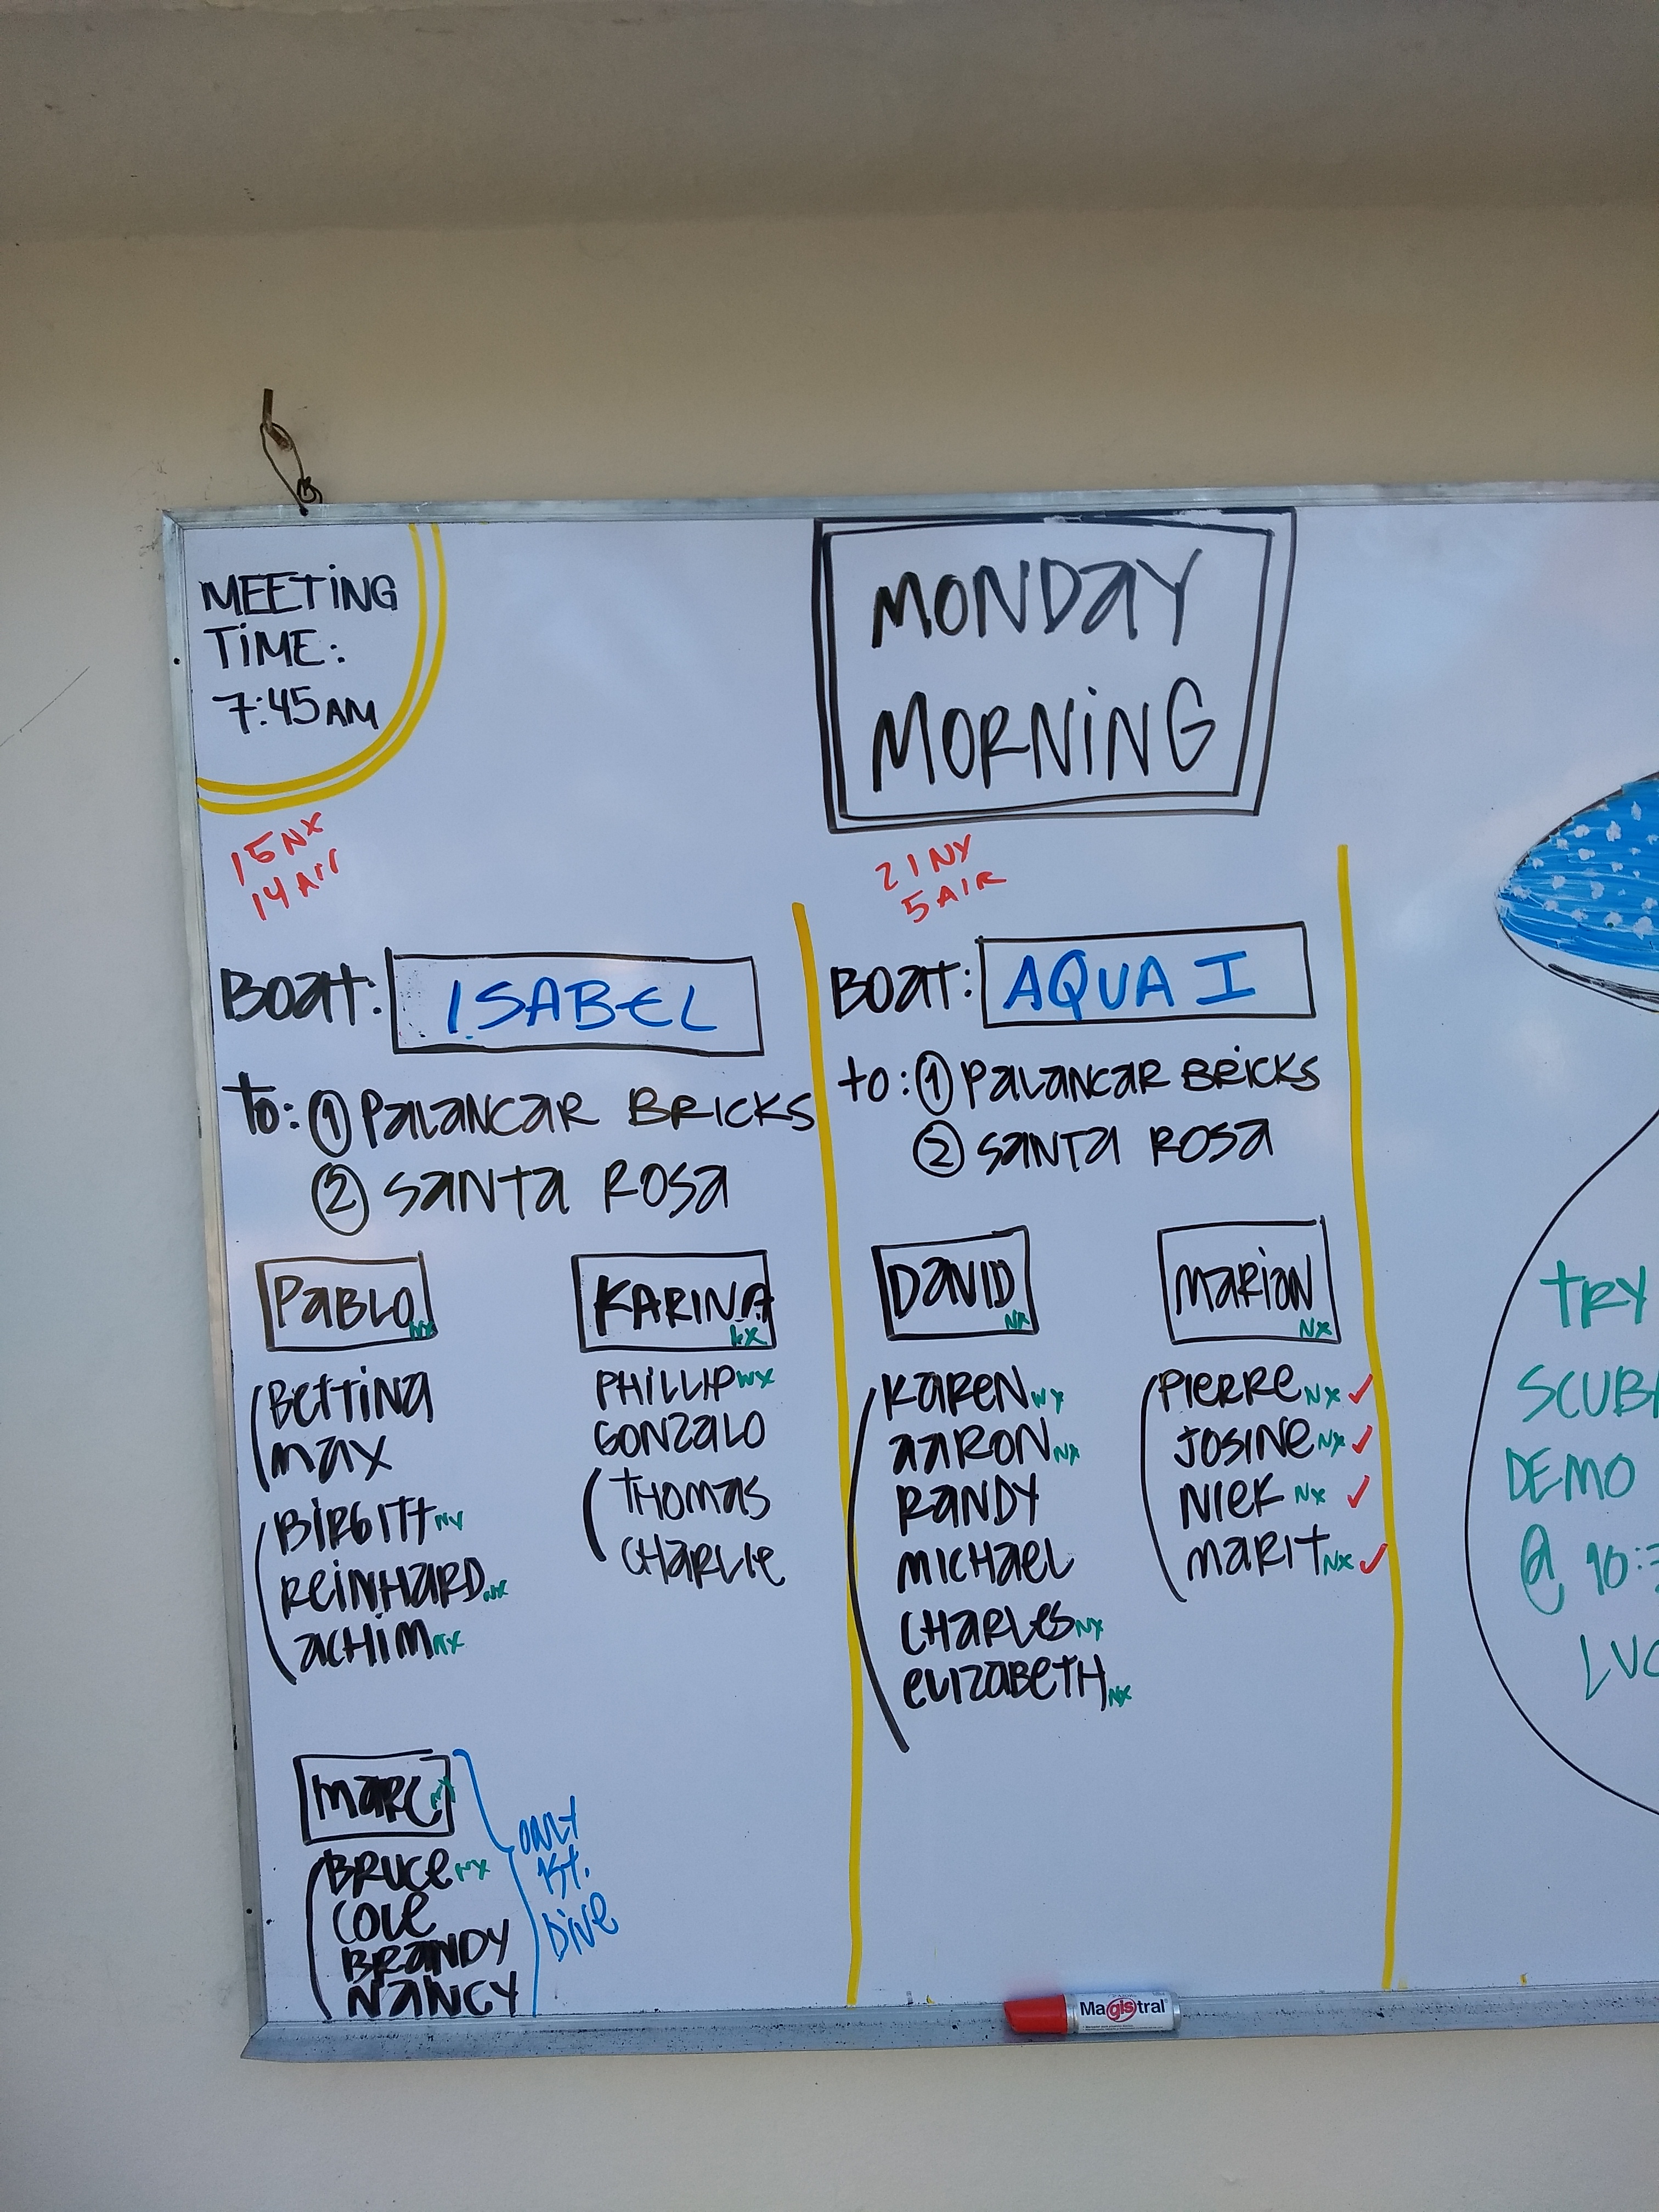 MEETING
TIME:
7:45AM
MONDAY
MORNING
15NX
14 Air
Boat: ISABEL
to: ① PALANCAR BRICKS
② SANTA ROSA
PABLO NX
Bettina
MAX
BIRGITT NX
REINHARD NX
ACHIM NX
KARINA NX
PHILLIP NX
GONZALO
THOMAS
CHARLIE
MARC NX
BRUCE NX
COLE
BRANDY
NANCY
ONLY
1st.
DIVE
21 NX
5 AIR
BOAT: AQUA I
to: ① PALANCAR BRICKS
② SANTA ROSA
DAVID NX
KAREN NX
AARON NX
RANDY
MICHAEL
CHARLES NX
ELIZABETH NX
MARION NX
PIERRE NX ✓
JOSINE NX ✓
NIEK NX ✓
MARIT NX ✓
TRY
SCUBA
DEMO
@ 10:
Magistral